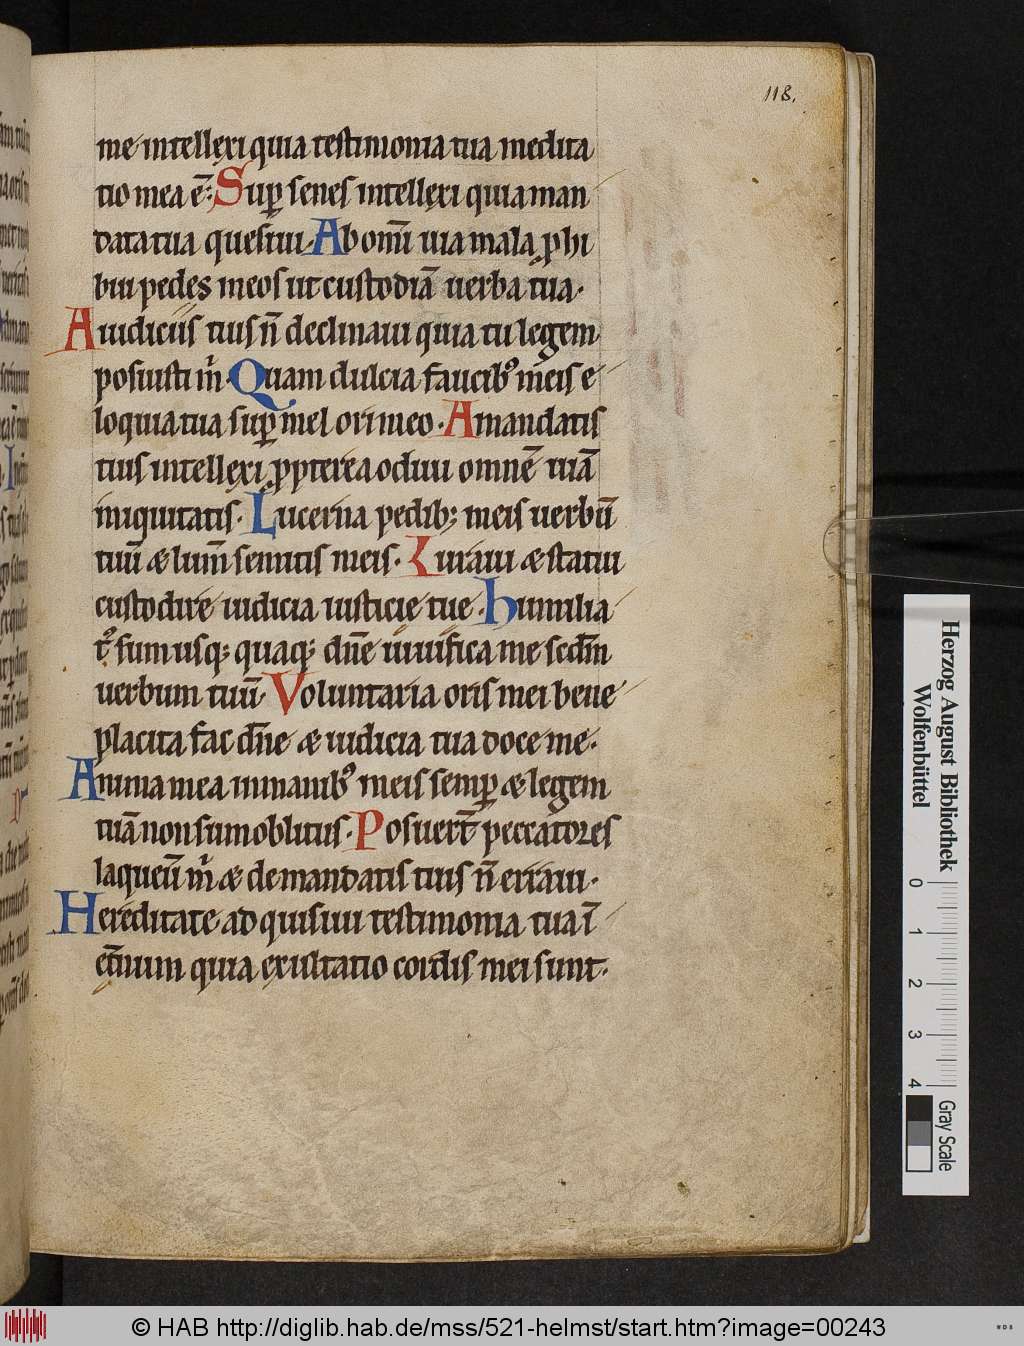 118.
me intellexi quia testimonia tua medita
tio mea ē. Suꝑ senes intellexi quia man
data tua quesiui. Ab om̄i uia mala ꝓhi
bui pedes meos ut custodiā uerba tua.
A iudiciis tuis n̄ declinaui quia tu legem
posuisti m̄. Quam dulcia faucib᷒ meis e
loquia tua suꝑ mel ori meo. A mandatis
tuis intellexi ꝓpterea odiui omnē uiā
iniquitatis. Lucerna pedib; meis uerbū
tuū & lum̄ semitis meis. Iuraui & statui
custodire iudicia iusticie tue. Humilia
t᷒ sum usq; quaq; dn̄e uiuifica me scd̄m
uerbum tuū. Voluntaria oris mei bene
placita fac dn̄e & iudicia tua doce me.
Anima mea in manib᷒ meis semꝑ & legem
tuā non sum oblitus. Posuer̄t peccatores
laqueū m̄ & de mandatis tuis n̄ erraui.
Hereditate adquisiui testimonia tua ī
et̄num quia exultatio cordis mei sunt.
Herzog August Bibliothek
Wolfenbüttel
0 1 2 3 4
Gray Scale
© HAB http://diglib.hab.de/mss/521-helmst/start.htm?image=00243